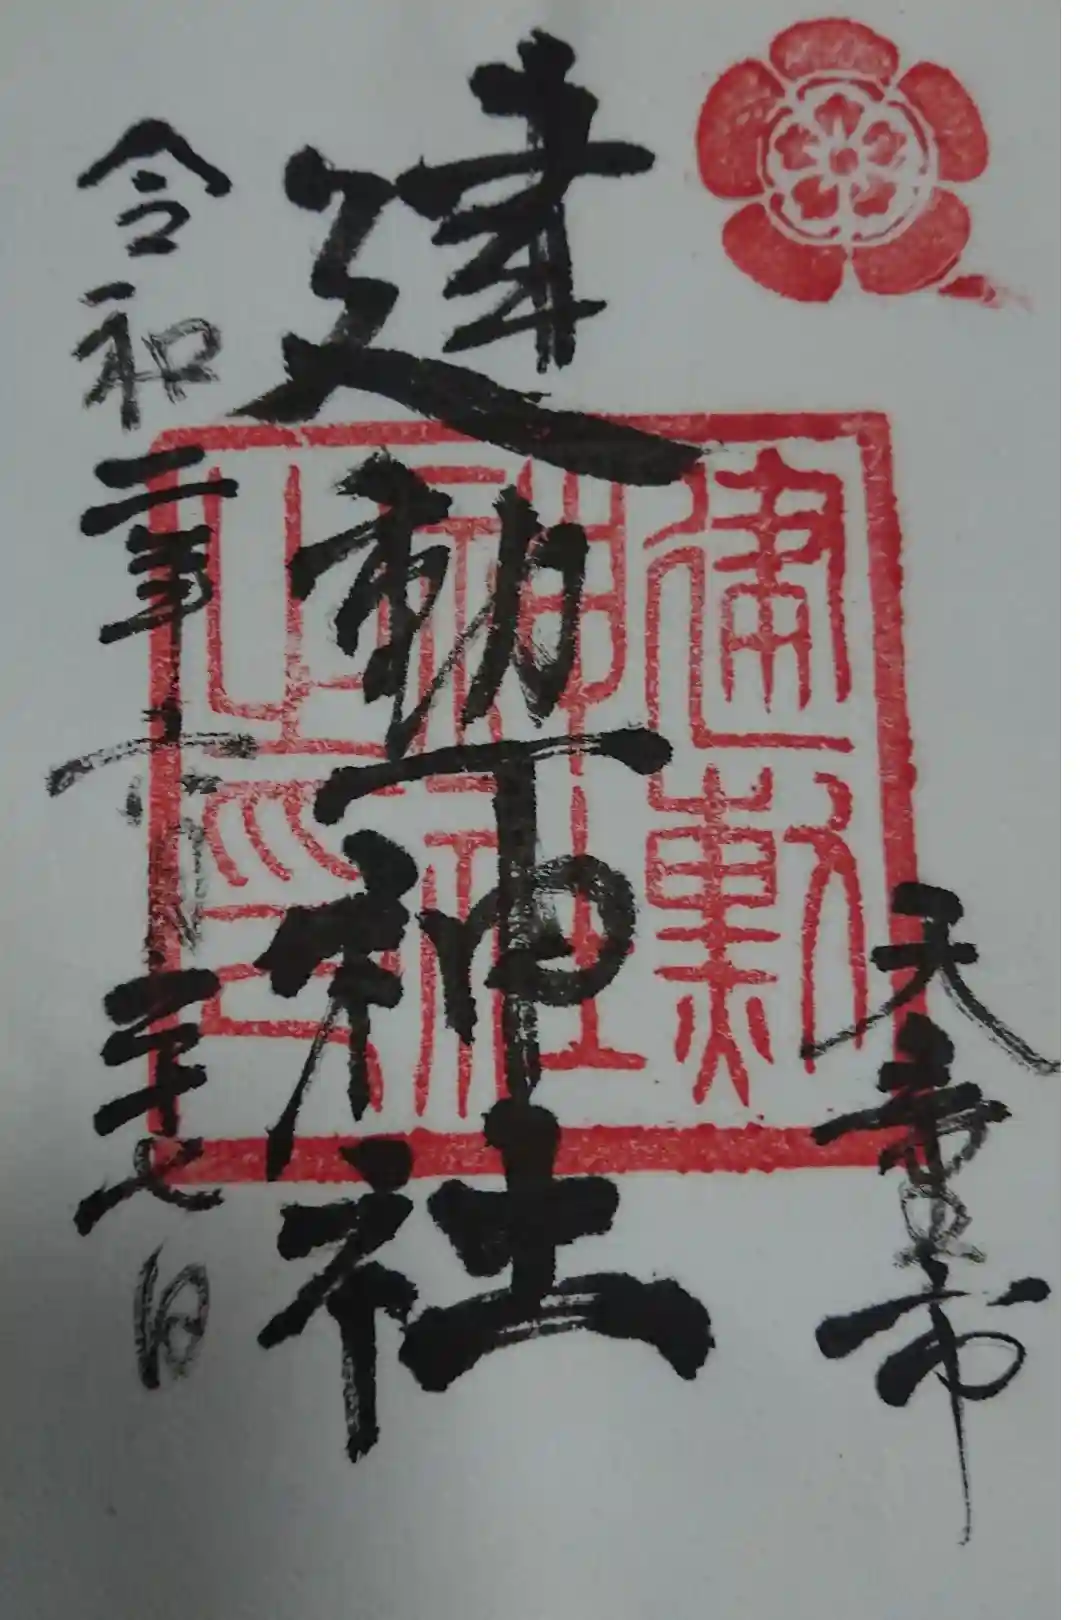 天童市
建勲神社
令和二年 月二十七日
建勲
神社
之印